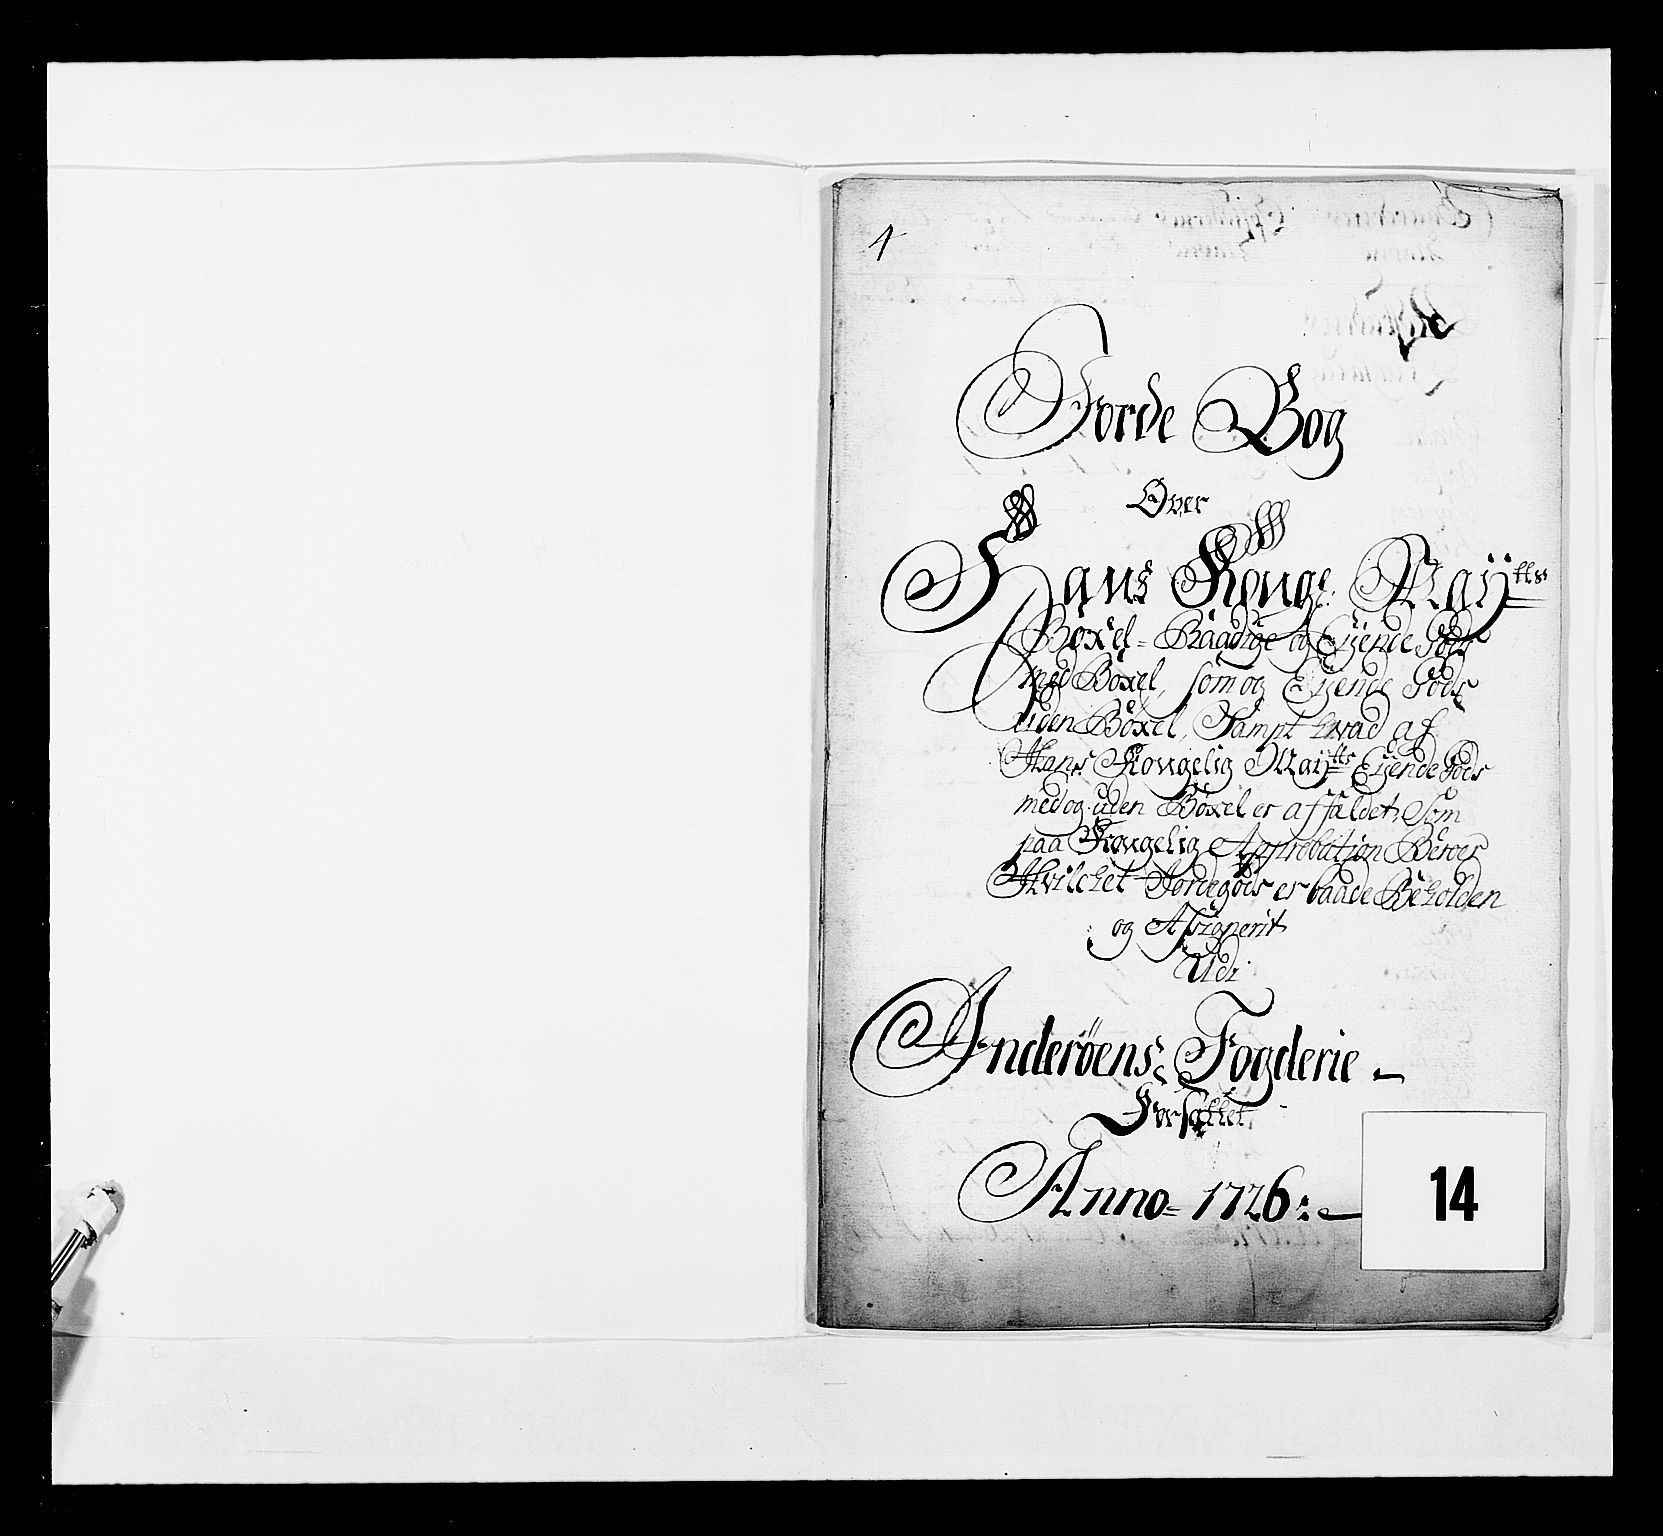 4
Jorde Bog
Over
Hans Konge: Mayٴtts
Böxel-Raadige og Eyende Gods
med Böxel, som og Eyende Gods
uden Böxel, Sampt hvad af
Hans Kongelig Maytts Eyende Gods
med og uden Böxel er affældet, Som
paa Kongelig Approbation Beroer
Hvilchet Jordegods er baade Beholden
og Assignerit
Udi
Inderöens Fogderie
Forfattet
Anno 1726:
14